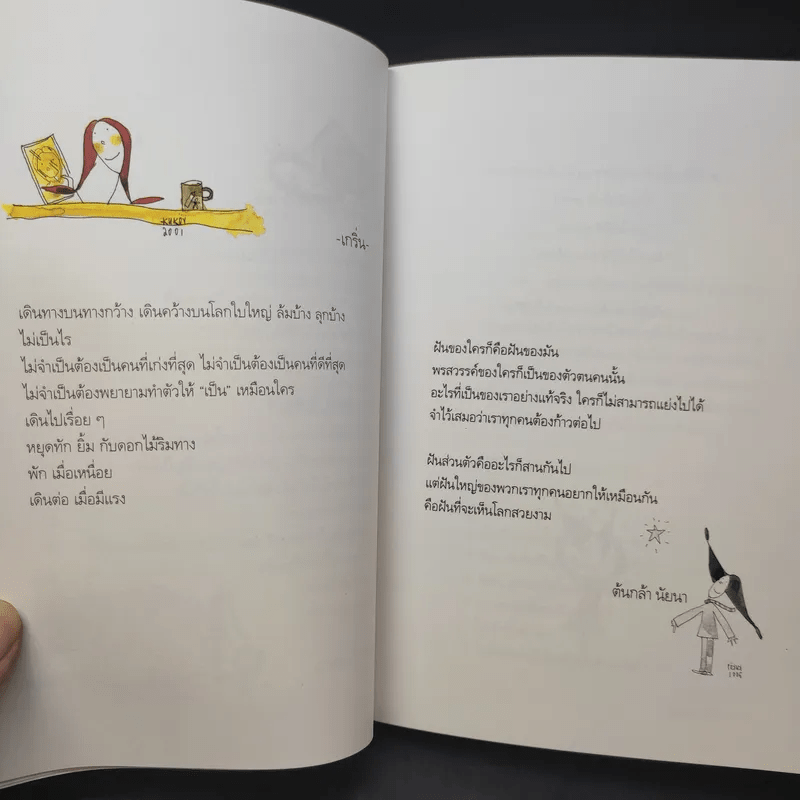 KUKRY
2001
-เกริ่น-
เดินทางบนทางกว้าง เดินคว้างบนโลกใบใหญ่ ล้มบ้าง ลุกบ้าง
ไม่เป็นไร
ไม่จำเป็นต้องเป็นคนที่เก่งที่สุด ไม่จำเป็นต้องเป็นคนที่ดีที่สุด
ไม่จำเป็นต้องพยายามทำตัวให้ “เป็น” เหมือนใคร
เดินไปเรื่อย ๆ
หยุดทัก ยิ้ม กับดอกไม้ริมทาง
พัก เมื่อเหนื่อย
เดินต่อ เมื่อมีแรง
ฝันของใครก็คือฝันของมัน
พรสวรรค์ของใครก็เป็นของตัวตนคนนั้น
อะไรที่เป็นของเราอย่างแท้จริง ใครก็ไม่สามารถแย่งไปได้
จำไว้เสมอว่าเราทุกคนต้องก้าวต่อไป
ฝันส่วนตัวคืออะไรก็สานกันไป
แต่ฝันใหญ่ของพวกเราทุกคนอยากให้เหมือนกัน
คือฝันที่จะเห็นโลกสวยงาม
ต้นกล้า นัยนา